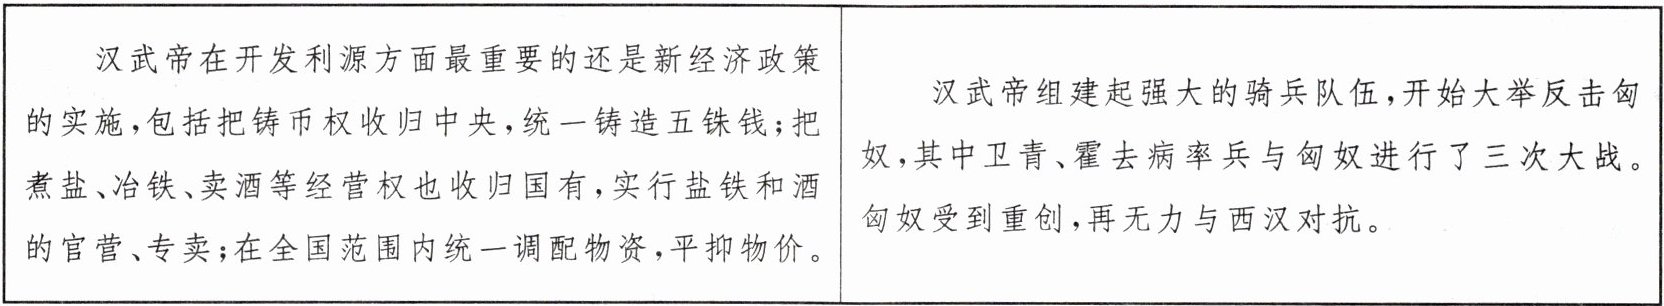 汉武帝在开发利源方面最重要的还是新经济政策
的实施,包括把铸币权收归中央,统一铸造五铢钱;把
煮盐、冶铁、卖酒等经营权也收归国有,实行盐铁和酒
的官营、专卖;在全国范围内统一调配物资,平抑物价。
汉武帝组建起强大的骑兵队伍,开始大举反击匈
奴,其中卫青、霍去病率兵与匈奴进行了三次大战。
匈奴受到重创,再无力与西汉对抗。